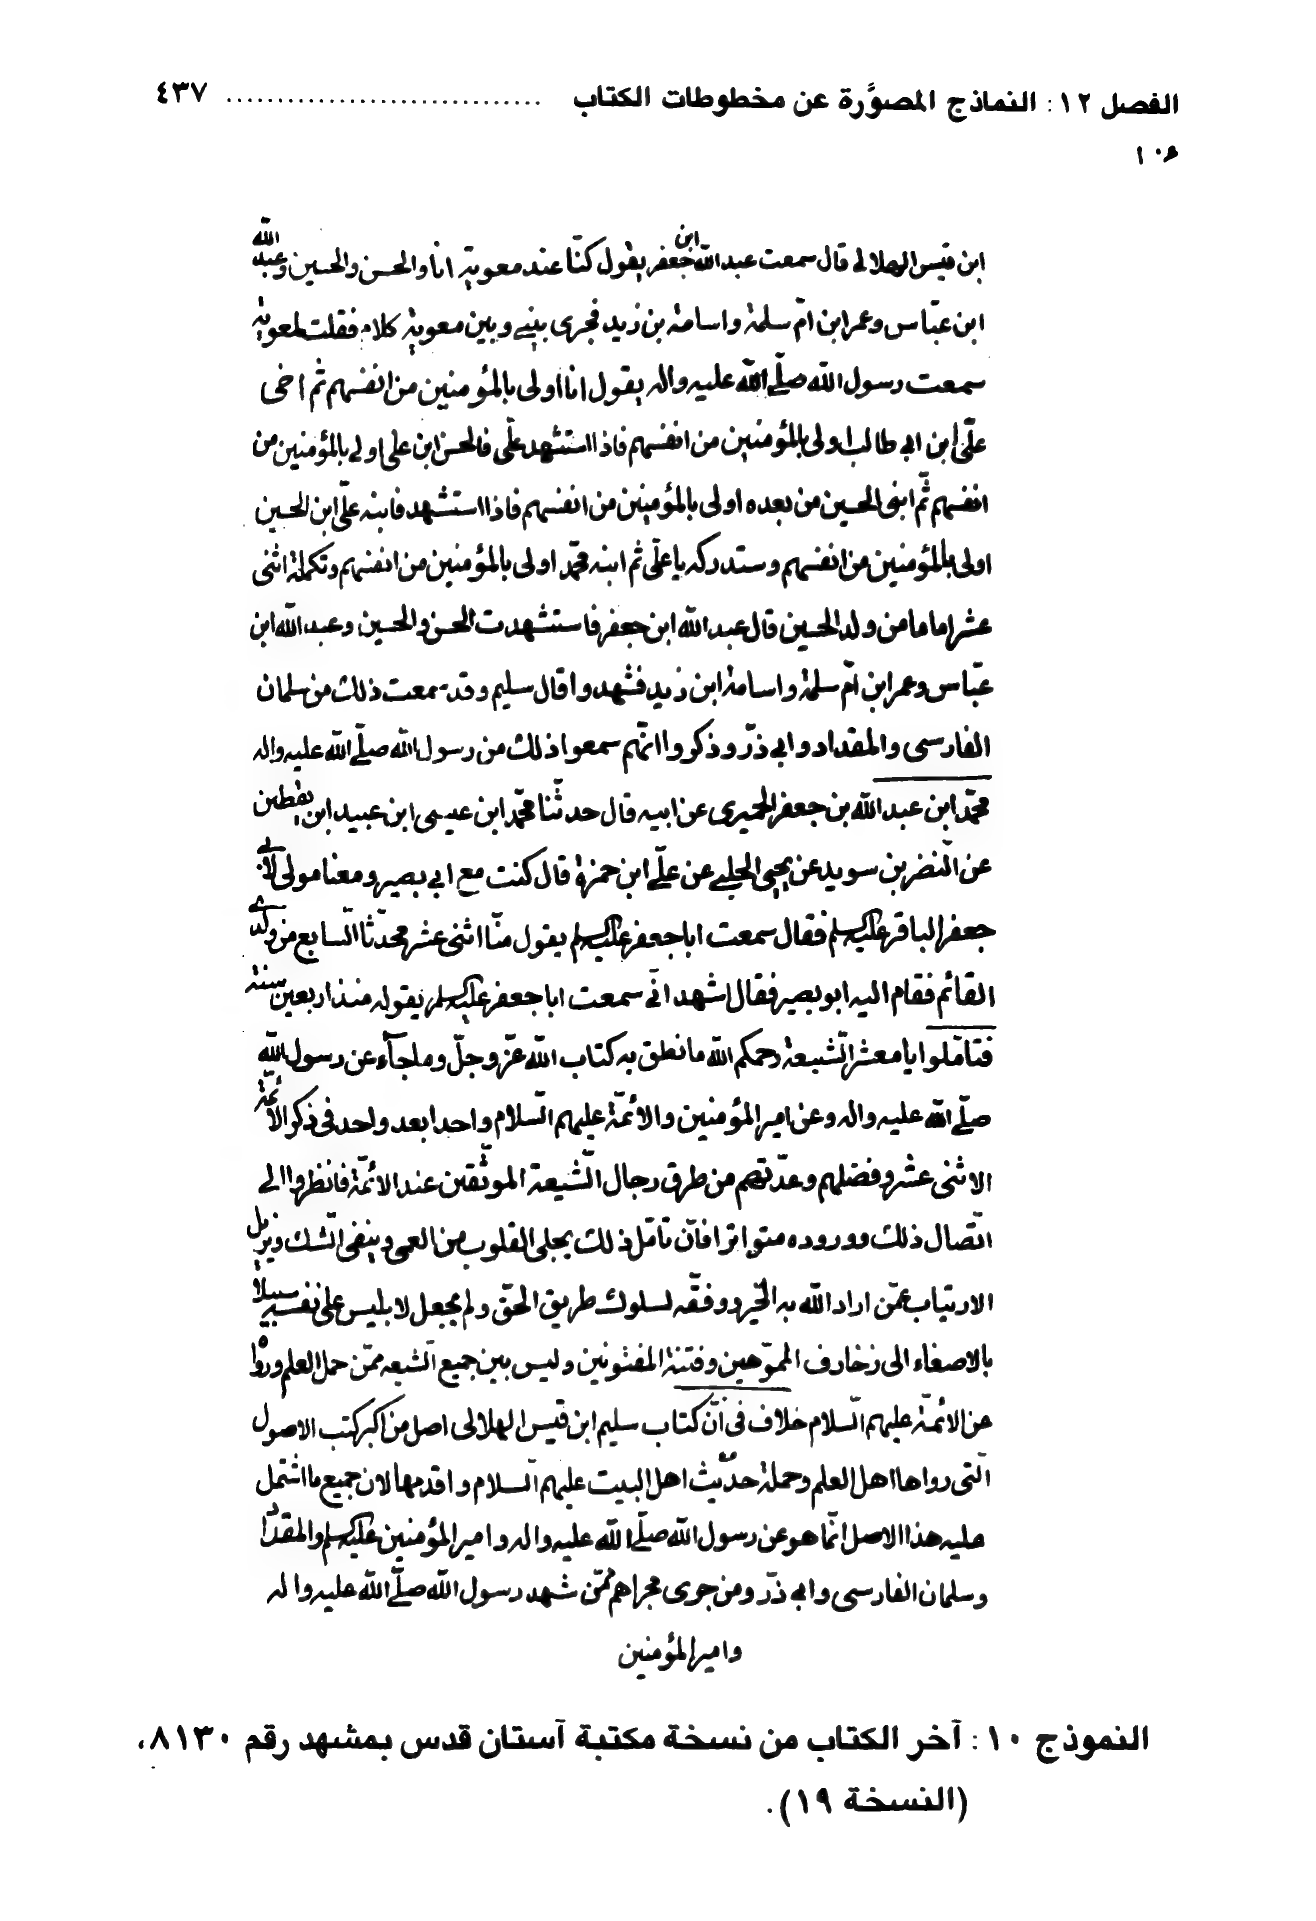 الفصل ١٢: النماذج المصوَّرة عن مخطوطات الكتاب .............................. ٤٣٧
ابن قيس الهلالي قال سمعت عبد الله ابن جعفر يقول كنّا عند معوية انا والحسن والحسين وعبد الله
ابن عبّاس وعمر ابن امّ سلمة واسامة بن زيد فجرى بيني وبين معوية كلام فقلت لمعوية
سمعت رسول الله صلّى الله عليه واله يقول انا اولى بالمؤمنين من انفسهم ثم اخى
علىّ ابن ابي طالب اولى بالمؤمنين من انفسهم فاذا استشهد علىّ فالحسن ابن على اولى بالمؤمنين من
انفسهم ثمّ ابنى الحسين من بعده اولى بالمؤمنين من انفسهم فاذا استشهد فابنه علىّ ابن الحسين
اولى بالمؤمنين من انفسهم وستدركه يا علىّ ثم ابنه محمّد اولى بالمؤمنين من انفسهم وتكملة اثنى
عشر اماما من ولد الحسين قال عبد الله ابن جعفر فاستشهدت الحسن والحسين وعبد الله ابن
عبّاس وعمر ابن امّ سلمة واسامة ابن زيد فشهدوا قال سليم وقد سمعت ذلك من سلمان
الفارسى والمقداد وابي ذرّ وذكروا انّهم سمعوا ذلك من رسول الله صلّى الله عليه واله
محمّد ابن عبد الله بن جعفر الحميرى عن ابيه قال حدثنا محمّد ابن عيسى ابن عبيد ابن يقطين
عن النّضر بن سويد عن يحيى الحلبي عن علىّ ابن حمزة قال كنت مع ابي بصير ومعنا مولى لابي
جعفر الباقر عليه السلم فقال سمعت ابا جعفر عليه السلم يقول منّا اثنى عشر محدّثا السّابع من ولدي
القائم فقام اليه ابو بصير فقال اشهد انّي سمعت ابا جعفر عليه السلم يقوله منذ اربعين سنة
فتامّلوا يا معشر الشّيعة رحمكم الله ما نطق به كتاب الله عزّ وجلّ وما جآء عن رسول الله
صلّى الله عليه واله وعن امير المؤمنين والائمّة عليهم السّلام واحدا بعد واحد في ذكر الائمّة
الاثنى عشر وفضلهم وعدّتهم من طرق رجال الشّيعة الموثّقين عند الائمّة فانظروا الى
اتّصال ذلك ووروده متواترا فانّ تامّل ذلك يجلى القلوب من العمى وينفى الشّك ويزيل
الارتياب عمّن اراد الله به الخير ووفّقه لسلوك طريق الحقّ ولم يجعل لابليس على نفسه سبيلا
بالاصغاء الى زخارف المموّهين وفتنة المفتونين وليس بين جميع الشّيعه ممّن حمل العلم ورواه
عن الائمّة عليهم السّلام خلاف في انّ كتاب سليم ابن قيس الهلالى اصل من اكبر كتب الاصول
التى رواها اهل العلم وحملة حديث اهل البيت عليهم السّلام واقدمها لان جميع ما اشتمل
عليه هذا الاصل انّما هو عن رسول الله صلّى الله عليه واله وامير المؤمنين عليه السلم والمقداد
وسلمان الفارسى وابي ذرّ ومن جرى مجراهم ممّن شهد رسول الله صلّى الله عليه واله
وامير المؤمنين
النموذج ١٠: آخر الكتاب من نسخة مكتبة آستان قدس بمشهد رقم ٨١٣٠،
(النسخة ١٩).